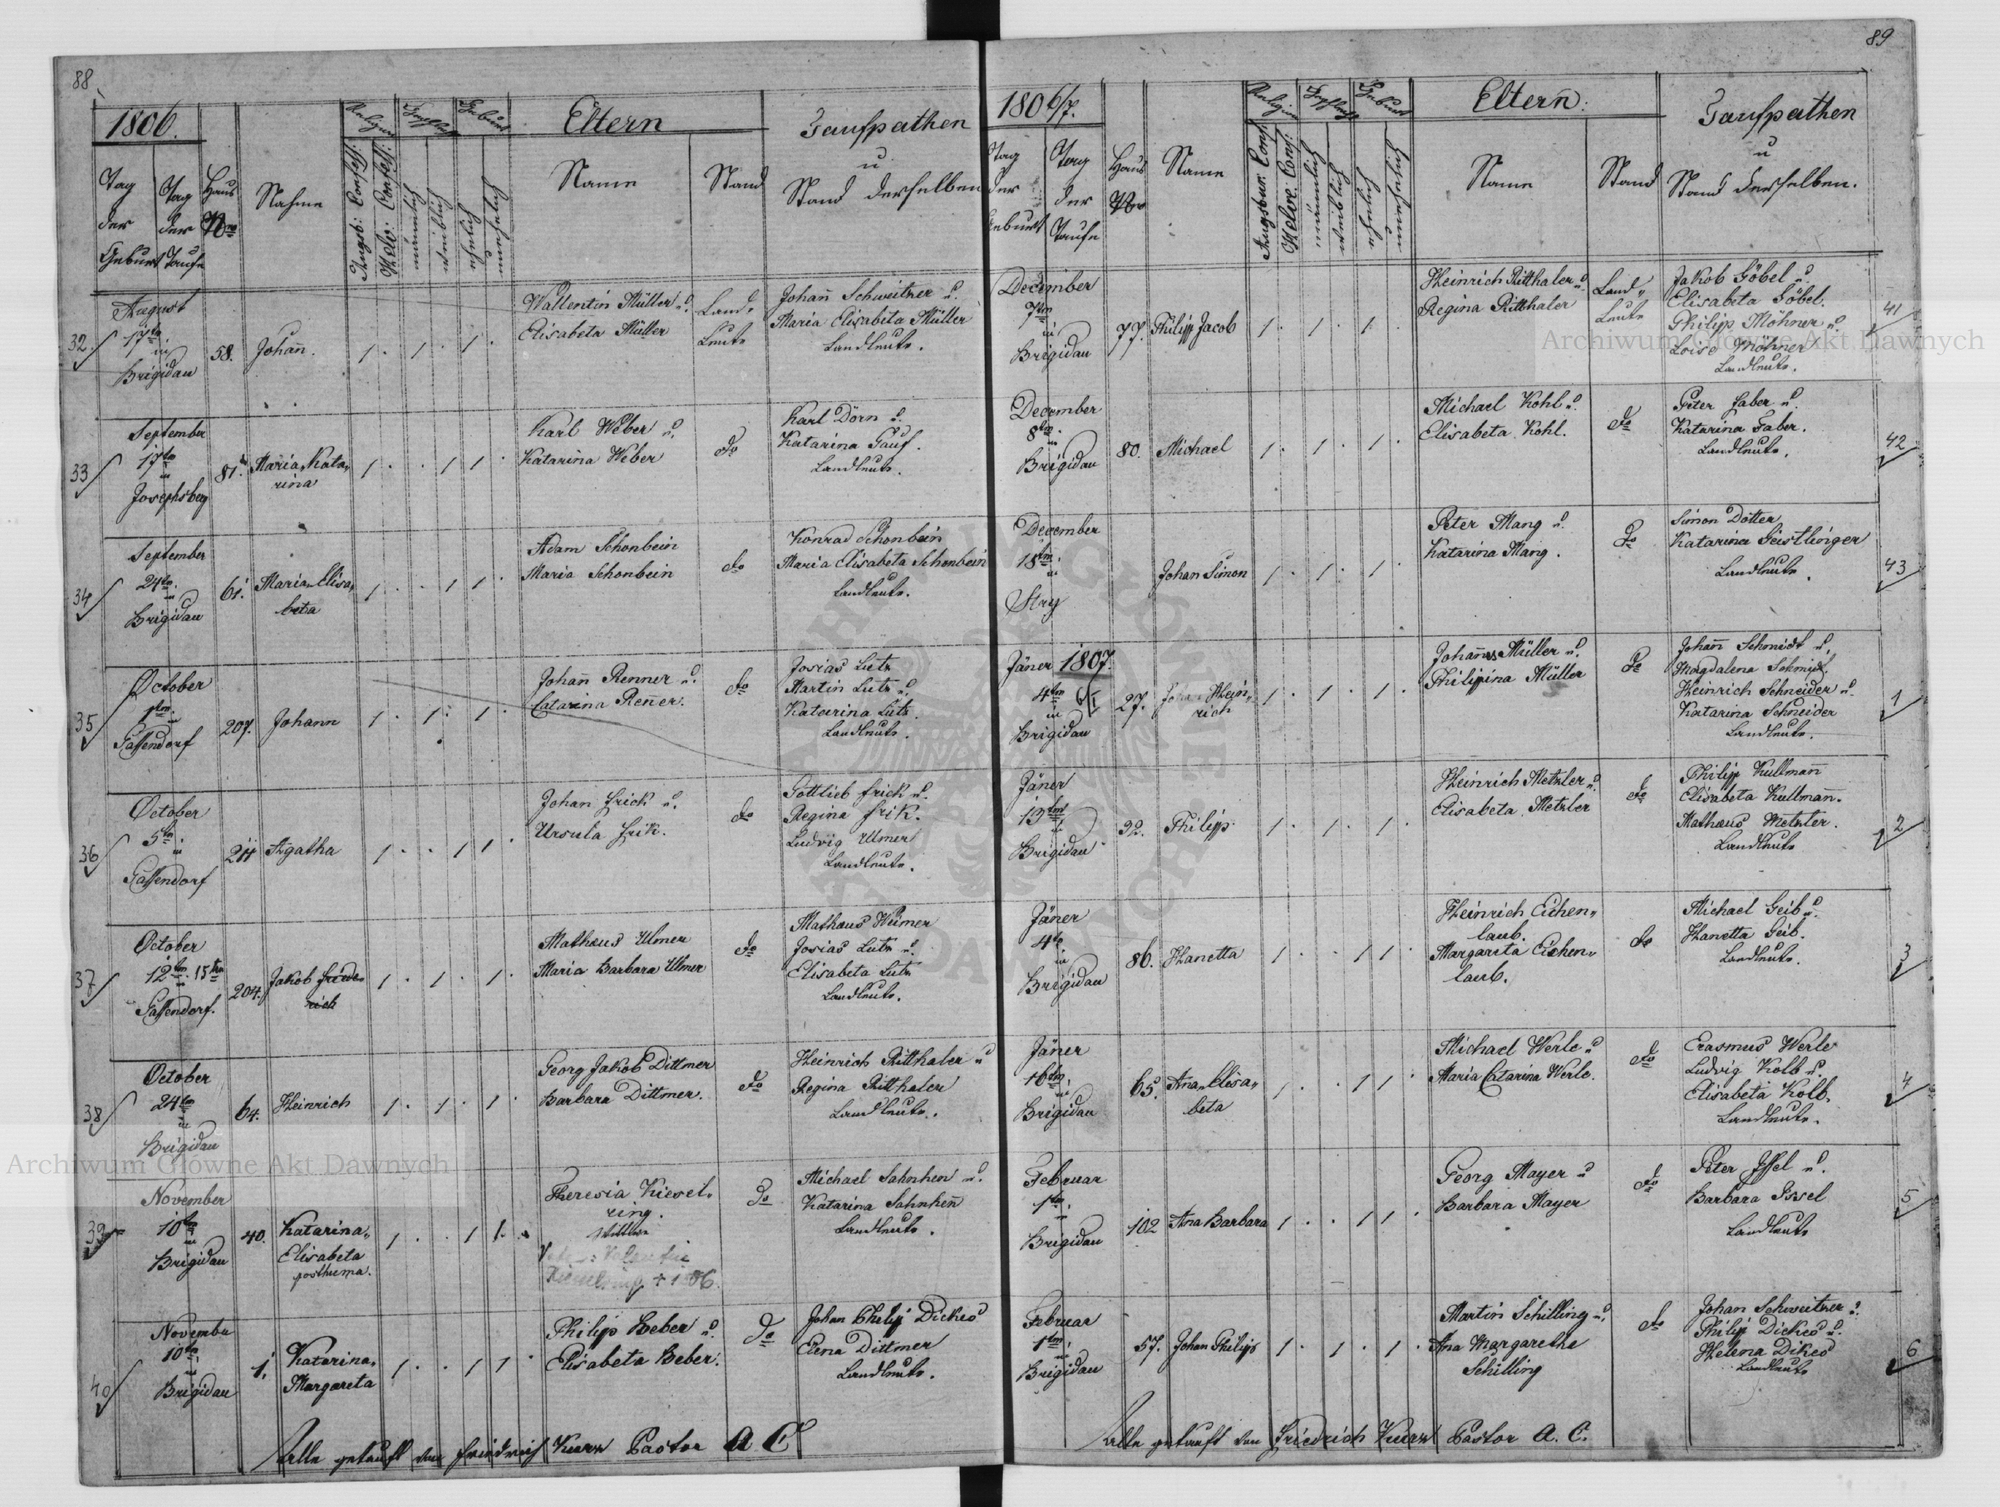 88
1806.
Religion
Geschlecht
Geburt
Eltern
Taufpathen
u
Stand derselben
Tag
der
Geburt
Tag
der
Taufe
Haus
Nro
Nahme
Augsb: Confess:
Helv: Confess:
männlich
weiblich
ehelich
unehelich
Name
Stand
32
August
17tn
in
Brigidau
58.
Johañ.
1 . 1 . 1 .
Wallentin Müller u.
Elisabeta Müller
Land-
Leute
Johañ Schweitzer u.
Maria Elisabeta Müller
Landleute.
33
September
17tn
in
Josephsberg
81.
Maria Kata-
rina
1 . . 1 1 .
Karl Weber u.
Katarina Weber
do
Karl Dörn u.
Katarina Fauf.
Landleute.
34
September
24tn
in
Brigidau
61.
Maria Elisa-
beta
1 . . 1 1 .
Adam Schonbein
Maria Schonbein
do
Konrad Schonbein
Maria Elisabeta Schonbein
Landleute.
35
October
1tn
in
Gassendorf
207.
Johann
1 . 1 . 1 .
Johan Renner u.
Catarina Reñer.
do
Josias Lutz
Martin Lutz u.
Katarina Lutz.
Landleute.
36
October
5tn
in
Gassendorf
211
Agatha
1 . . 1 1 .
Johan Frick u.
Ursula Frik.
do
Gottlieb Frick u.
Regina Frik.
Ludwig Ulmer
Landleute.
37
October
12tn 15ten
Gassendorf.
204.
Jakob Fride-
rich
1 . 1 . 1 .
Mathaus Ulmer
Maria Barbara Ulmer
do
Mathaus Weimer
Josias Lutz u.
Elisabeta Lutz
Landleute.
38
October
24tn
in
Brigidau
64.
Heinrich
1 . 1 . 1 .
Georg Jakob Dittmer
Barbara Dittmer.
do
Heinrich Ritthaler u
Regina Ritthaler
Landleute.
39
November
10tn
in
Brigidau
40.
Katarina-
Elisabeta
posthuma.
1 . . 1 1 .
Theresia Kiesel-
ring.
Wittwe
Valentin
Kieselring + 1806.
do
Michael Sahnhen u.
Katarina Sahnheñ
Landleute.
40
November
10tn
in
Brigidau
1.
Katarina-
Margareta
1 . . 1 1 .
Philip Beber u.
Elisabeta Beber.
do
Johan Philip Dickes
Elena Dittmer
Landleute.
Alle getauft von Friedrich Kurz Pastor A C
89
1806/7.
Religion
Geschlecht
Geburt
Eltern.
Taufpathen
u
Stand derselben.
Tag
der
Geburt
Tag
der
Taufe
Haus
Nro
Name
Augsbur: Conf:
Helve: Conf:
männlich
weiblich
ehelich
unehelich
Name
Stand
December
7tn
in
Brigidau
77.
Philipp Jacob
1 . 1 . 1 .
Heinrich Ritthaler u.
Regina Ritthaler
Land-
Leute
Jakob Göbel u.
Elisabeta Göbel.
Philip Möhner u.
Loise Möhner
Landleute.
41
December
8tn
in
Brigidau
80.
Michael
1 . 1 . 1 .
Michael Kohl u.
Elisabeta Kohl.
do
Peter Faber u.
Katarina Faber.
Landleute.
42
December
18tn
in
Stry
Johan Simon
1 . 1 . 1 .
Peter Mang u.
Katarina Mang.
do
Simon Dotter
Katarina Geistlinger
Landleute.
43
Jäner 1807.
4tn 6/I
in
Brigidau
27.
Johan Hein-
rich
1 . 1 . 1 .
Johañes Müller u.
Philipina Müller
do
Johañ Schmidt u.
Magdalena Schmidt.
Heinrich Schneider u.
Katarina Schneider
Landleute.
1
Jäner
13tn
in
Brigidau
92.
Philipp
1 . 1 . 1 .
Heinrich Metzler u.
Elisabeta Metzler
do
Philip Kullmañ
Elisabeta Kullmañ.
Mathaus Metzler.
Landleute
2
Jäner
4tn
in
Brigidau
86.
Hanetta
1 . . 1 1 .
Heinrich Eichen-
laub.
Margarita Eichen-
laub.
do
Michael Geib u.
Hanetta Geib.
Landleute.
3
Jäner
16tn
in
Brigidau
65.
Ana Elisa-
beta
1 . . 1 1 .
Michael Werle u
Maria Catarina Werle.
do
Erasmus Werle
Ludwig Kolb u.
Elisabeta Kolb.
Landleute.
4
Februar
1tn
in
Brigidau
102
Ana Barbara
1 . . 1 1 .
Georg Mayer u
Barbara Mayer
do
Peter Issel u.
Barbara Issel
Landleute
5
Februar
1tn
in
Brigidau
57.
Johan Philipp
1 . 1 . 1 .
Martin Schilling u.
Ana Margaretha
Schilling
do
Johan Schweitzer u.
Philip Dickes u.
Helena Dikes
Landleute
6
Alle getauft von Friedrich Kurz Pastor A. C.
Archiwum Główne Akt Dawnych
Archiwum Główne Akt Dawnych
ARCHIWUM GŁÓWNE AKT DAWNYCH